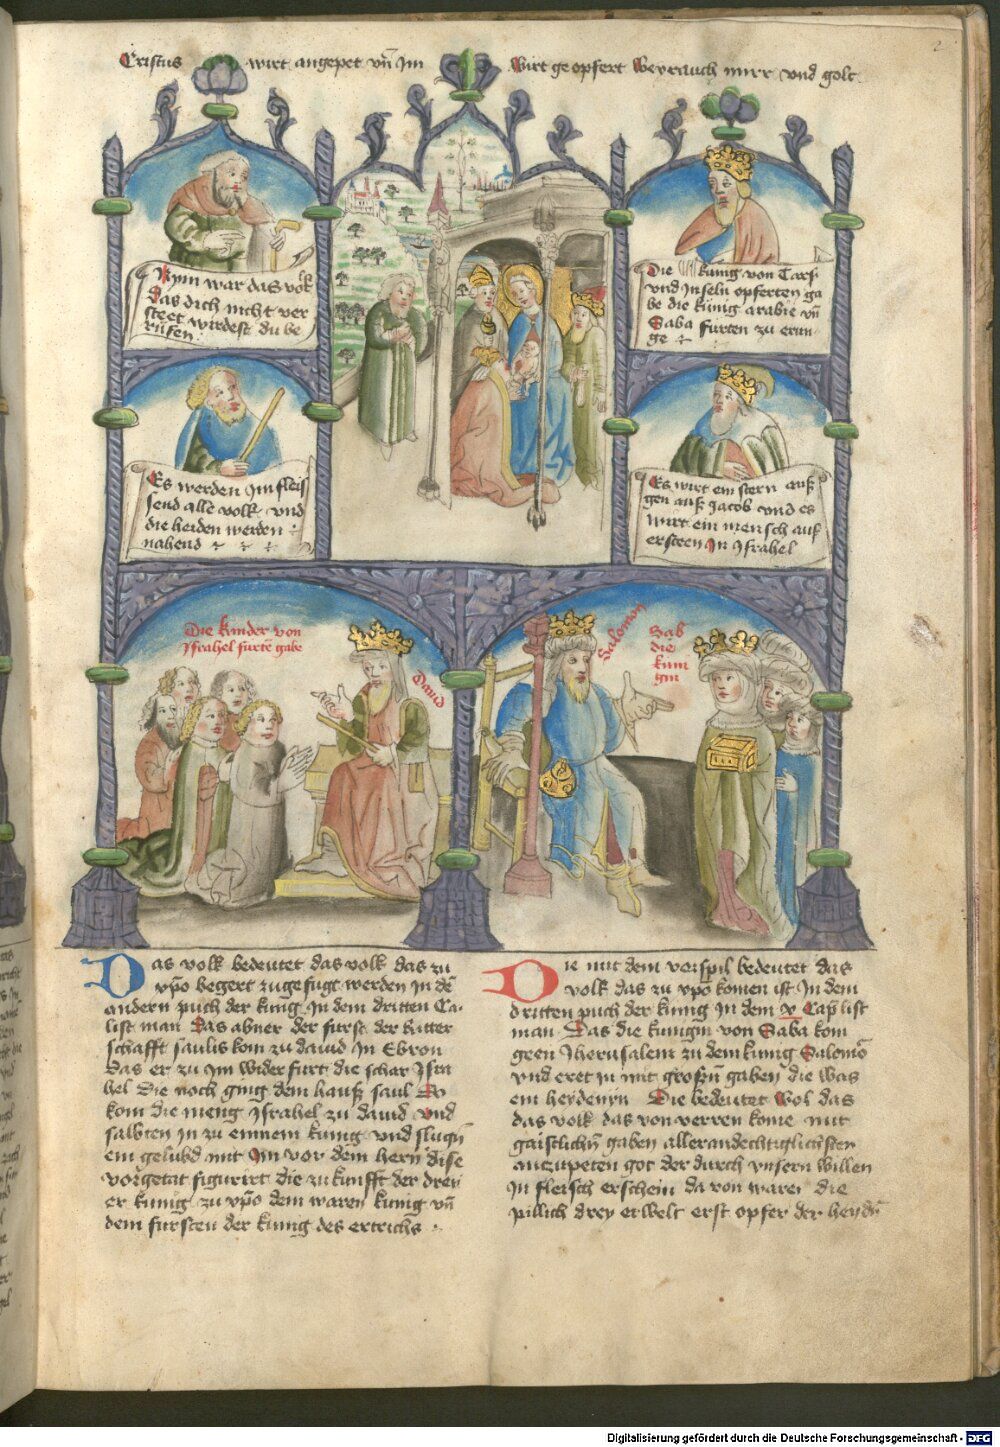 Cristus wirt angepet vn̄ Jm wirt geopfert weyrauch mirr vnd golt
2
Nym war das volk
das dich nicht ver
steet wirdest du be
rüfen
Die kunig von Tars
vnd Jnseln opferten ga
be die künig arabie vn̄
Saba furten zu erun
ge
Es werden Jm fleis
send alle volk vnd
die heiden werden
nahend
Es wirt ein stern auf
gen auß Jacob vnd es
wirt ein mensch auf
ersteen Jn Jsrahel
Die kinder von
Jsrahel furtē gabe
Dauid
Salomon
Sab
die
kun
gin
Das volk bedeutet das volk das zu
xpō begert zugefugt werden Jn dē
andern puch der kunig Jn dem dritten Ca
list man Das abner der furst der Ritter
schafft saulis kom zu dauid Jn Ebron
Das er zu Jm widerfurt die schar Jsra
hel Die noch ging dem hauß saul Do
kom die meng Jsrahel zu dauid vnd
salbten Jn zu einem kunig vnd slugn̄
ein gelubd mit Jm vor dem hern dise
vorgetat figurirt die zukunfft der drey
er kunig zu xpō dem waren kunig vn̄
dem fursten der kunig des ertrichs
Die mit dem vorspil bedeutet das
volk das zu xpō komen ist Jn dem
dritten puch der kunig Jn dem x Cap list
man Das die kunigin von Saba kom
geen Jherusalem zu dem kunig Salomō
vnd eret jn mit großn̄ gaben die was
ein heydenyn Die bedeutet wol das
das volk das von verren kome mit
gaistlichn̄ gaben allerandechtiglichsten
anzupeten got der durch vnsern willen
Jn fleisch erschein da von waren die
pillich drey erwelt erst opfer der heydn̄
Digitalisierung gefördert durch die Deutsche Forschungsgemeinschaft - DFG